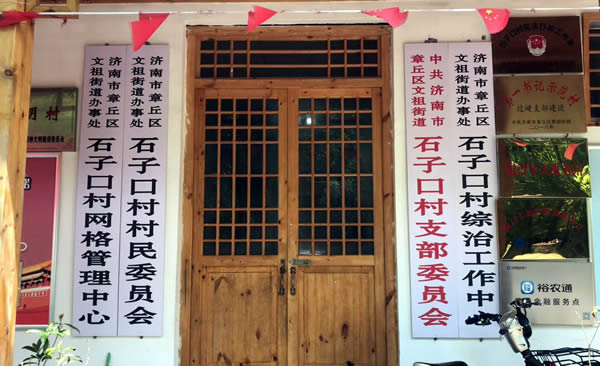 济南市章丘区
文祖街道办事处
石子口村网格管理中心
济南市章丘区
文祖街道办事处
石子口村村民委员会
中共济南市
章丘区文祖街道
石子口村支部委员会
济南市章丘区
文祖街道办事处
石子口村综治工作中心
明村
第一书记示范村
过硬支部建设
二〇一八年
裕农通
金融服务点